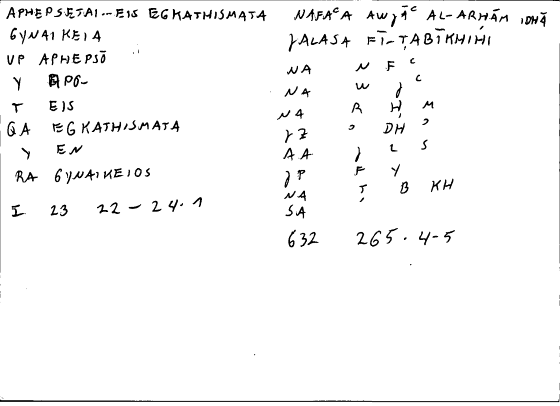 APHEPSETAI--EIS EGKATHISMATA
GYNAIKEIA
VP APHEPSŌ
Y APO-
T EIS
QA EGKATHISMATA
Y EN
RA GYNAIKEIOS
I 23 22-24.1
NAFAʿA AWǧĀʿ AL-ARḤĀM IḎHĀ
ǧALASA FĪ-ṬABĪKHIHI
NA N F ʿ
NA W ǧ ʿ
NA R Ḥ M
ǧZ ʾ DH ʾ
AA ǧ L S
ǧP F Y
NA Ṭ B KH
SA
632 265.4-5